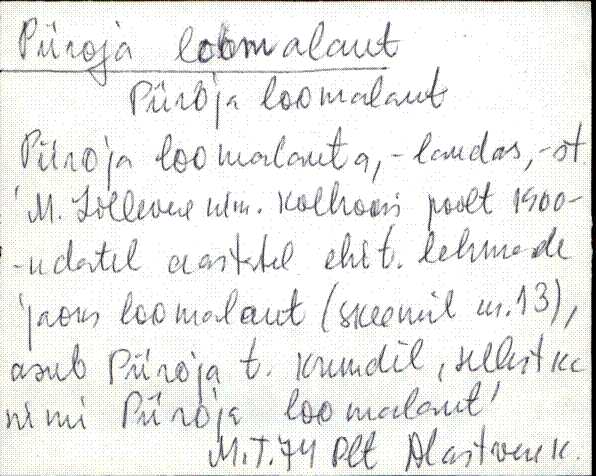 Piiroja loomalaut
Piiroja loomalaut
Piiroja loomalaut a, -laudas, -st
'M. Lillevere nim. kolhoosi poolt 1960-
-ndatel aastatel ehit. lehmade
jaoks loomalaut (skeemil nr. 13),
asub Piiroja t. krundil, sellest ka
nimi Piiroja loomalaut'
M.T. 74 Plt Alastvere k.